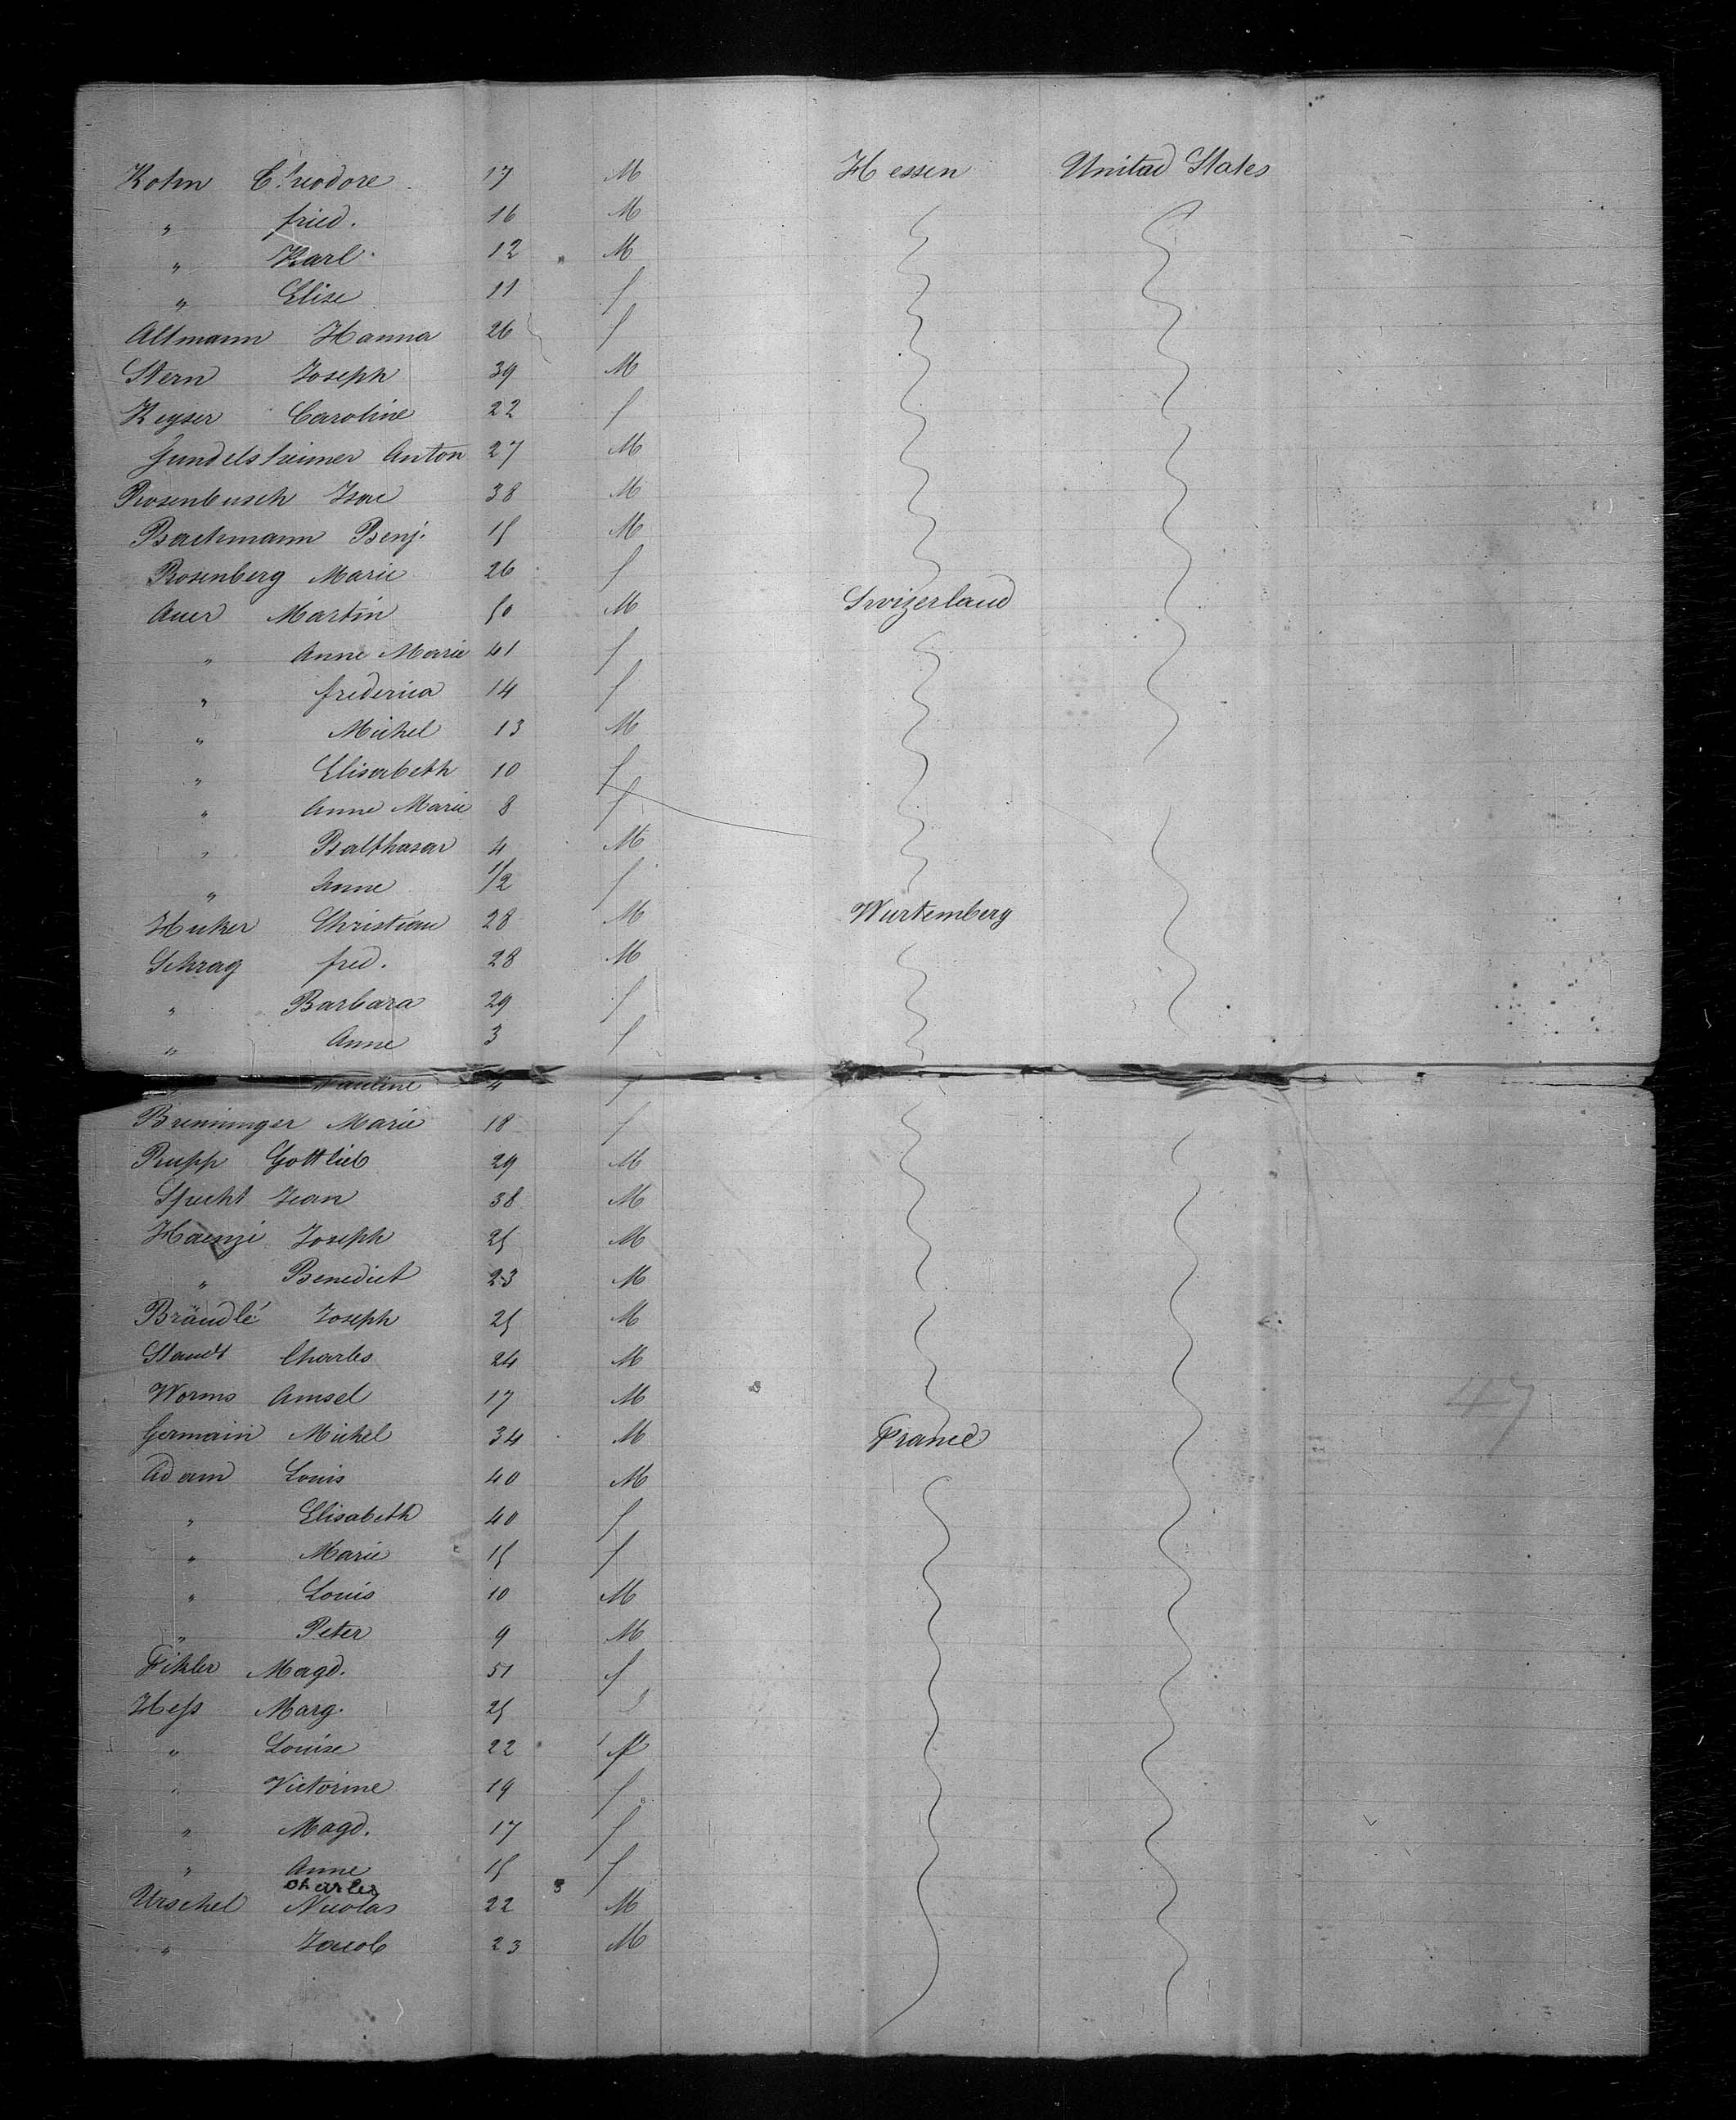 Kohn Theodore 17 M Hessen Unitad States
" fried. 16 M
" Karl 12 M
" Elise 11 f
Altmann Hanna 26 f
Stern Joseph 39 M
Keyser Caroline 22 f
Gundelsheimer Anton 27 M
Rosenbusch Isac 38 M
Bachmann Benj. 15 M
Rosenberg Marie 26 f
Auer Martin 50 M Swizerland
" Anne Marie 41 f
" frederica 14 f
" Michel 13 M
" Elisabeth 10 f
" Anne Marie 8 f
" Balthasar 4 M
" Anne 1/2 f
Huker Christian 28 M Wurtemberg
Schrag fred. 28 M
" Barbara 29 f
" Anne 3 f
Pauline 4 f
Breninger Marie 18 f
Rupp Gottlieb 29 M
Specht Jean 38 M
Haenzi Joseph 25 M
" Benedict 23 M
Brändlé Joseph 25 M
Staudt Charles 24 M
Worms Amsel 17 M
47
Germain Michel 34 M France
Adam Louis 40 M
" Elisabeth 40 f
" Marie 15 f
" Louis 10 M
" Peter 9 M
Fikler Magd. 51 f
Hess Marg. 25
" Louise 22 f
" Victorine 19 f
" Magd. 17 f
" Anne 15 f
Charles
Urschel Nicolas 22 M
" Jacob 23 M